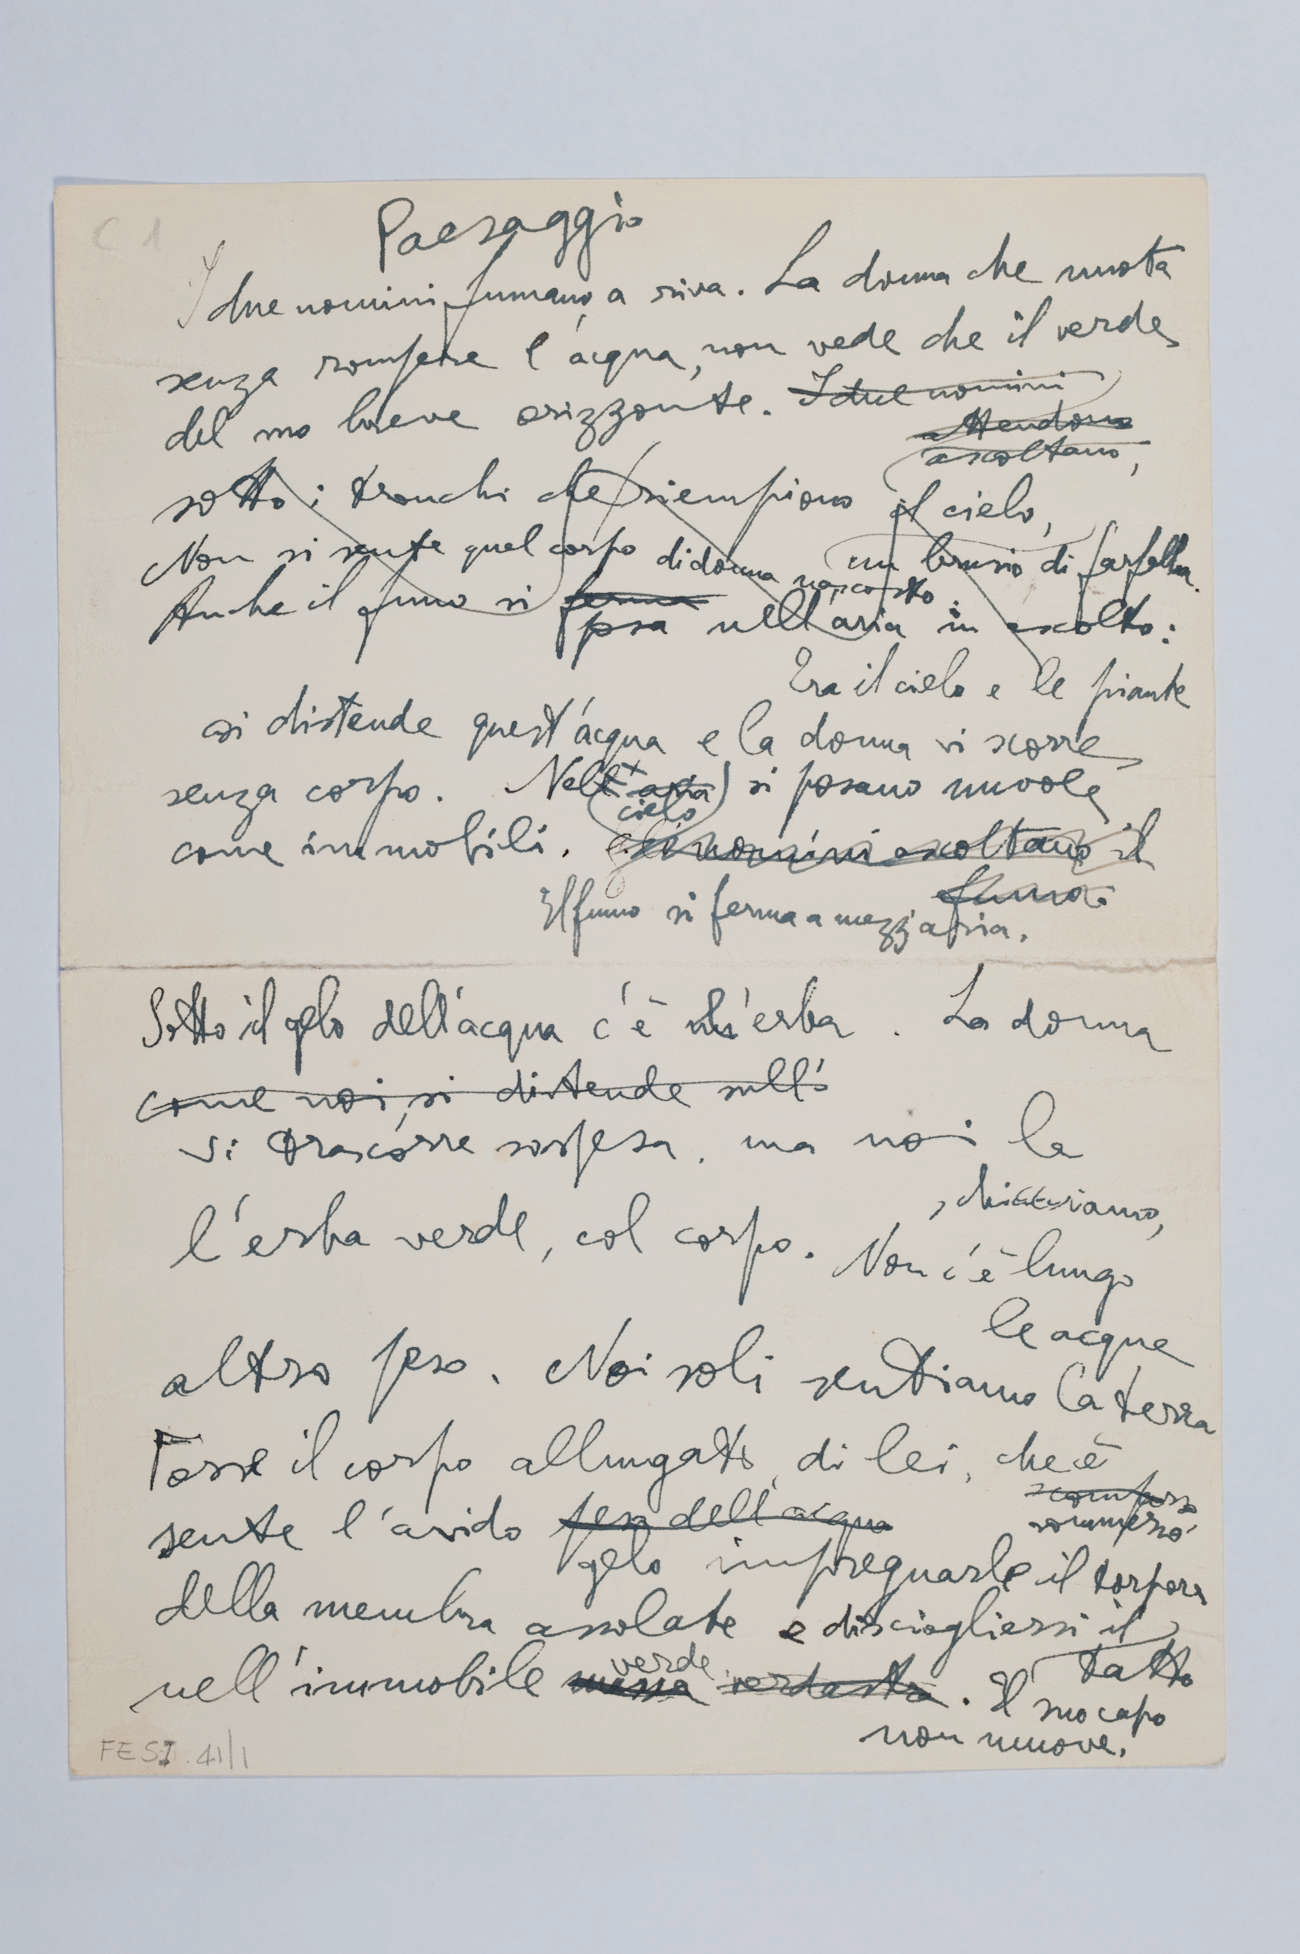 C 1
Paesaggio
I due uomini fumano, a riva. La donna che nuota
senza rompere l'acqua, non vede che il verde
del suo breve orizzonte. I due uomini
attendono
ascoltano,
sotto i tronchi che riempiono il cielo,
Non si sente quel corpo di donna nascosto: un brusio di farfalla.
Anche il fumo si ferma
posa nell'aria in ascolto:
Tra il cielo e le piante
si distende quest'acqua e la donna vi scorre
senza corpo. Nell'aria si posano nuvole
cielo
come immobili. Gli uomini ascoltano il
fumo.
Il fumo si ferma a mezz'aria.
Sotto il gelo dell'acqua c'è l'erba. La donna
come noi, si distende sull'
vi trascorre sospesa, ma noi la
schiacciamo,
l'erba verde, col corpo. Non c'è lungo
le acque
altro peso. Noi soli sentiamo la terra
Forse il corpo allungato, di lei, che è
scomparso
sommerso
sente l'avido peso dell'acqua
gelo impregnarle il torpore
della membra assolate e disciogliersi, il
tatto
nell'immobile verde. Il suo capo
non muove.
FESI.41/1